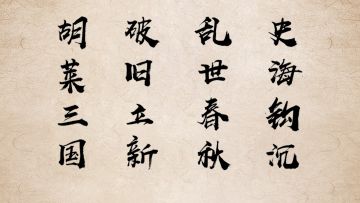 史海钩沉
乱世春秋
破旧立新
胡莱三国